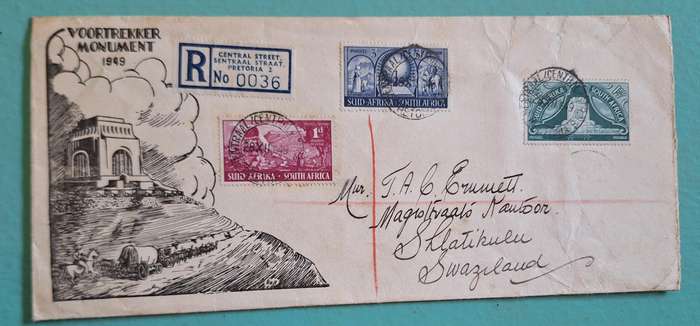 VOORTREKKER
MONUMENT
1949
R
CENTRAL STREET,
SENTRAAL STRAAT,
PRETORIA 2
No 0036
3
SUID-AFRIKA - SOUTH AFRICA
1d
SUID-AFRIKA - SOUTH AFRICA
SOUTH AFRICA
Mnr. T. A. C. Emmett.
Magistraats Kantoor.
Shlatikulu
Swaziland